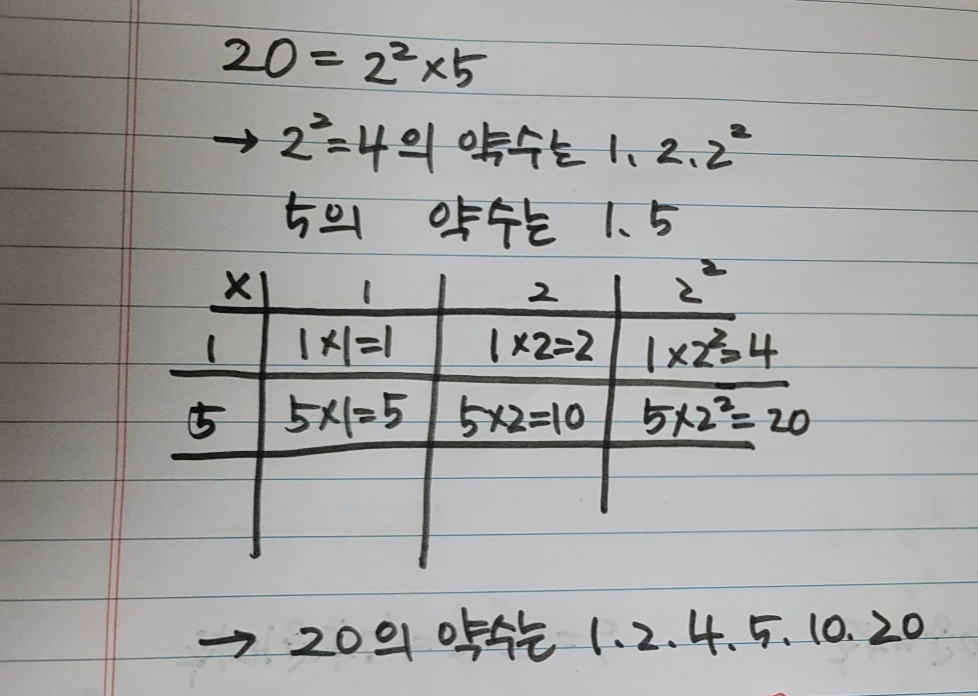 20 = 2²×5
→ 2²=4의 약수는 1, 2, 2²
5의 약수는 1, 5
× 1 2 2²
1 1×1=1 1×2=2 1×2²=4
5 5×1=5 5×2=10 5×2²=20
→ 20의 약수는 1. 2. 4. 5. 10. 20